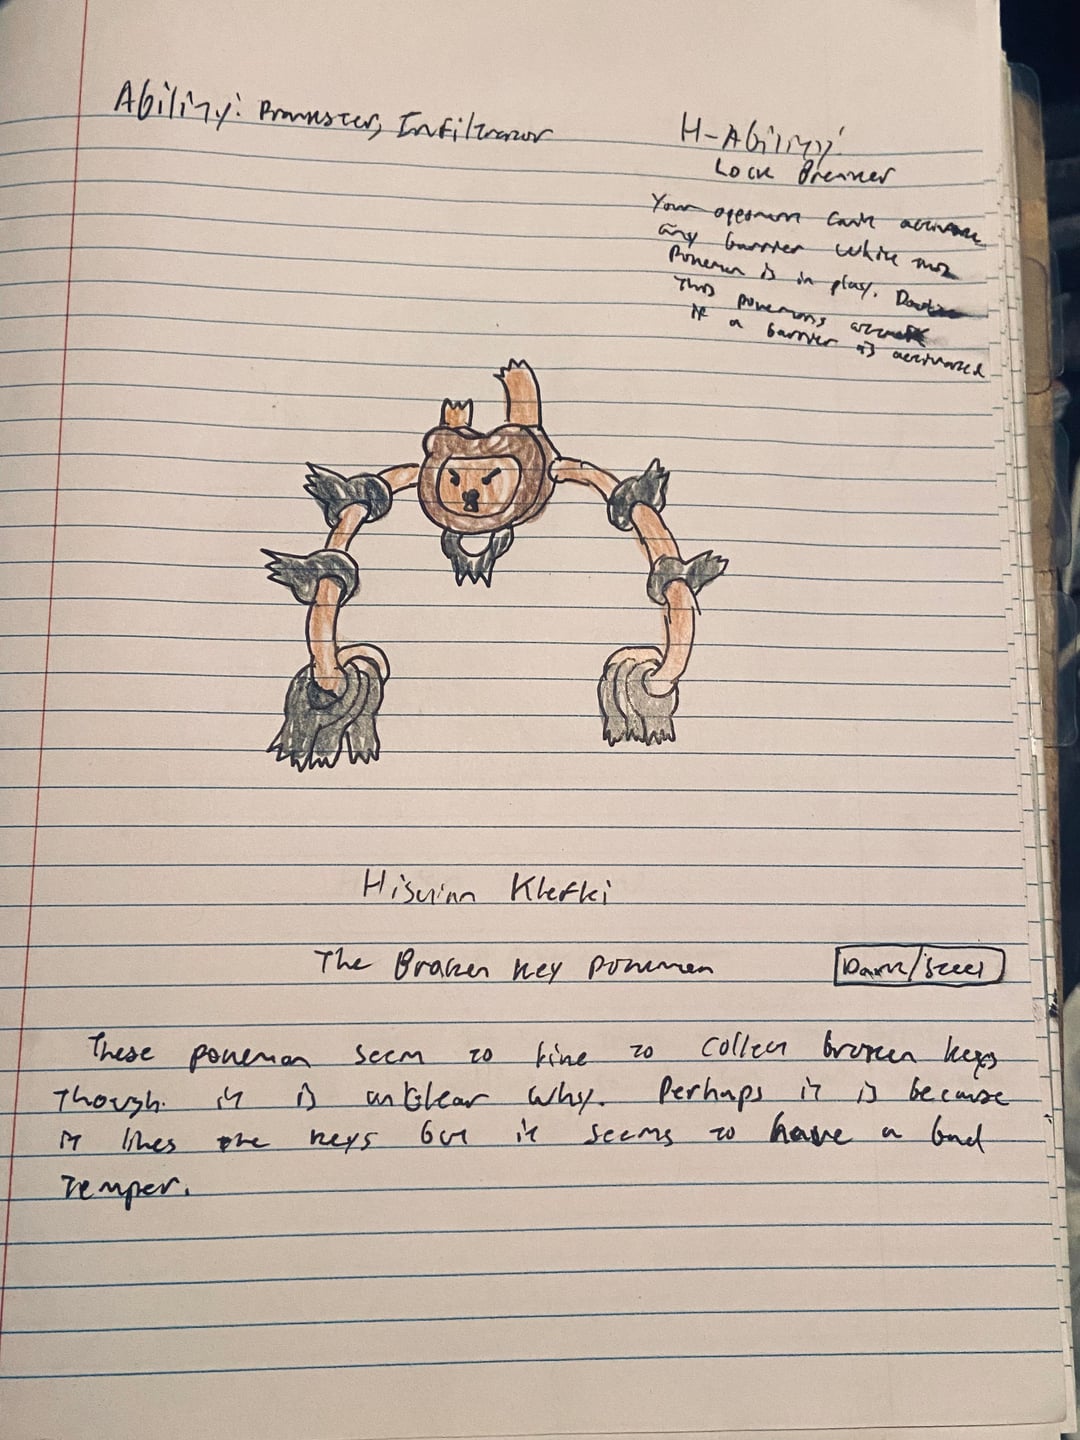 Ability: Prankster, Infiltrator
H-Ability:
Lock Breaker
Your opponent can't activate
any barrier while this
Pokemon is in play.
This pokemons attack
if a barrier is activated
Hisuian Klefki
The Broken Key Pokemon
Dark/Steel
These pokemon seem to like to collect broken keys
though it is unclear why. Perhaps it is because
it likes the keys but it seems to have a bad
temper.